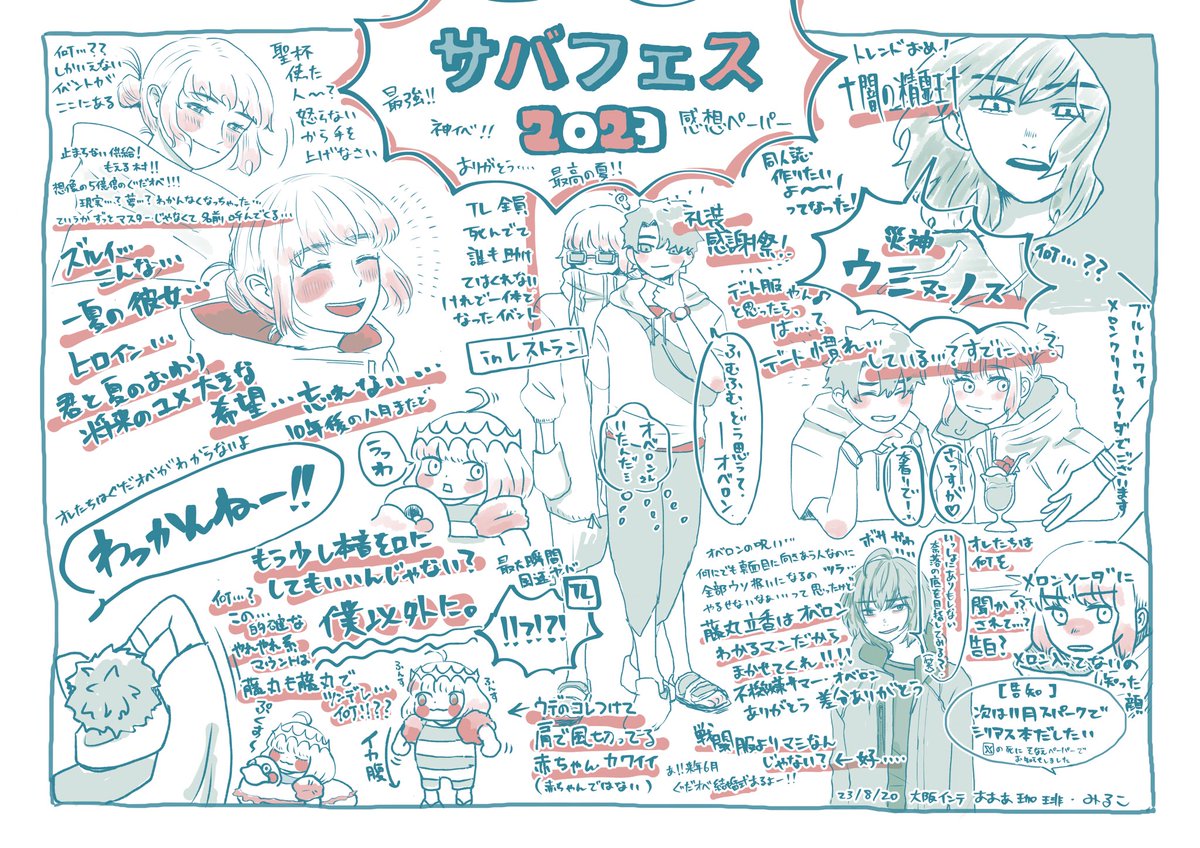 サバフェス
2023
感想ペーパー
最強!!
神イベ!!
ありがとう....
最高の夏!!
何...??
しかいえない
イベントが
ここにある
聖杯
使た
人〜?
怒らない
から手を
上げなさい
止まらない供給!
もえる村!!
想像の5億倍のぐだオベ!!!
現実...?夢...?わかんなくなっちゃった...
ていうかずっとマスターじゃなくて名前呼んでくる...
ズルイ...
こんな...
一夏の彼女...
ヒロイン...
君と夏のおわり
将来のユメ大きな
希望...忘れない...
10年後の八月まで
TL全員
死んでて
誰も助け
てはくれない
けれど一体で
なったイベント
inレストラン
礼装
感謝祭!
デート服やんの
と思ったら、
は...?
デート慣れ...している...?すでに...?
トレンドおめ!
†闇の精霊王†
同人誌
作りたい
よ〜〜!
ってなった!
災神
ウニヌンノス
何...??
ブルーハワイ
メロンクリームソーダでございます
ふむふむ、どう思って、
ーーオベロン
オベロンさん
いたんだ...
着いで...
さっすが♡
うっわ
オレたちはぐだオベがわからないよ
わっかんねー!!
もう少し本音を口に
してもいいんじゃない?
僕以外に。
何...?
この...
的確な
やれやれ系
マウントは
藤丸も藤丸で
ツンデレ...
何!!??
最大瞬間
風速が
TL
!!?!?!
ぷくす〜
ふんす
ふんす
イカ腹
←ウデのヨコしつけて
肩で風切ってる
赤ちゃんカワイイ
(赤ちゃんではない)
オベロンの呪い...
何にでも真面目に向きあう人なのに
全部ウソ扱いになるのツラ...
やるせないなぁ...って思ったけど
藤丸立香はオベロン
わかるマンだから
まかせてくれ!!!!
不機嫌サマー・オベロン
差分ありがとう
ありがとう
戦闘服よりマシなん
じゃない?←好....
あ!!来年6月
ぐだオベ結婚するよー!!
ボサやわ
いっぱいありもしない
奈落の底を目指してみる?
(笑)
オレたちは
何を
聞か
されて...?
!?
告白?
メロンソーダに
メロン入ってないの
知った
顔
[告知]
次は11月スパークで
シリアス本だしたい
の死にそなえペーパーで
お知らせしました
23/8/20 大阪インテ おああ珈琲・みるこ